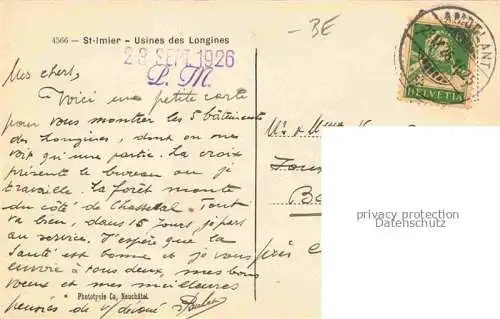 4566 — St-Imier — Usines des Longines
- BE
23 SEPT 1926
P. M.
HELVETIA
Mes chers,
Voici une petite carte
pour vous montrer les 5 bâtiments
des Longines, dont on ne
voit qu'une partie. La croix
présente le bureau ou je
travaille. La forêt monte
du côté de Chasseral. Tout
va bien, dans 15 jours je part
au service. J'espère que la
santé est bonne et je vous
envoie à tous deux, mes bons
voeux et mes meilleures
pensées de v/ dévoué
Mr & Mme
près
Phototypie Co, Neuchâtel
privacy protection
www.oldthing.de